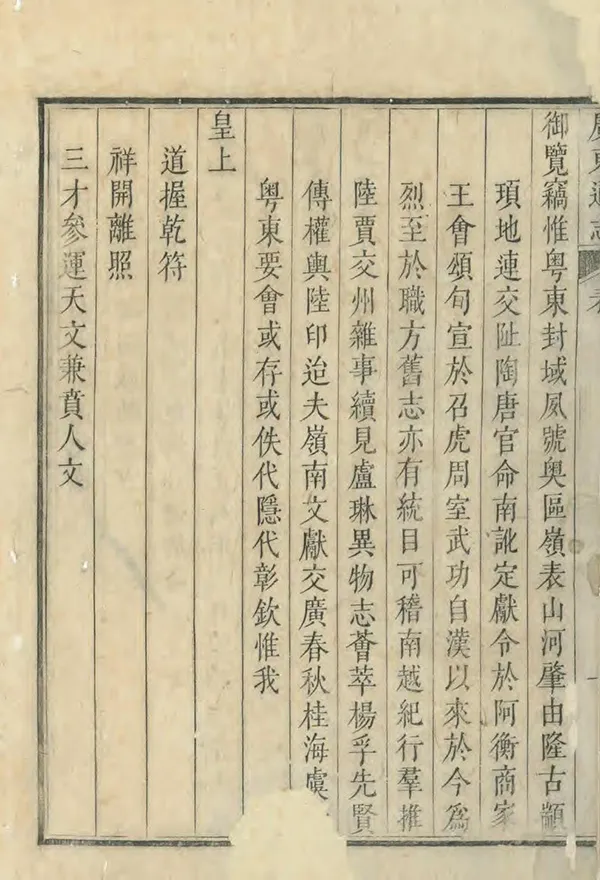 廣東通志
御覽竊惟粵東封域夙號奧區嶺表山河肇由隆古顓
頊地連交阯陶唐官命南訛定獻令於阿衡商家
王會頌旬宣於召虎周室武功自漢以來於今為
烈至於職方舊志亦有統目可稽南越紀行羣推
陸賈交州雜事續見盧琳異物志薈萃楊孚先賢
傳權輿陸印迨夫嶺南文獻交廣春秋桂海虞
粵東要會或存或佚代隱代彰欽惟我
皇上
道握乾符
祥開離照
三才參運天文兼賁人文